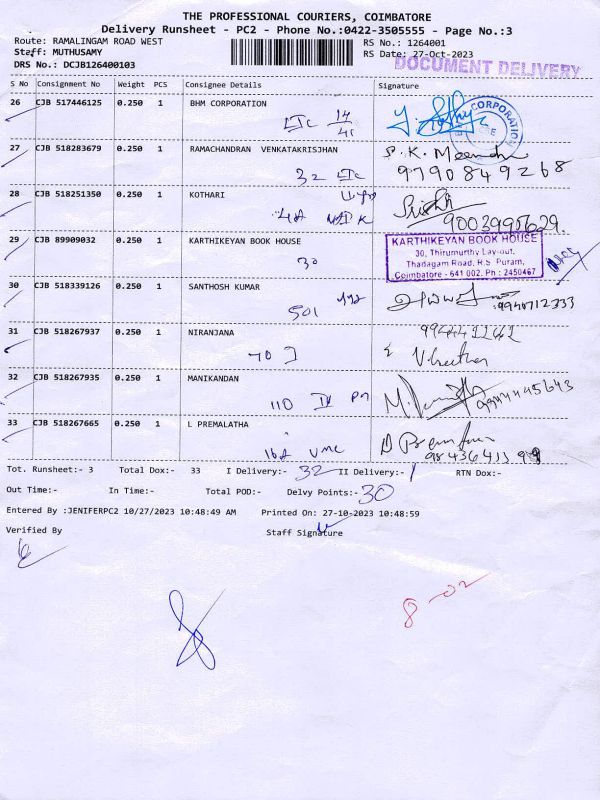 THE PROFESSIONAL COURIERS, COIMBATORE
Delivery Runsheet - PC2 - Phone No.:0422-3505555 - Page No.:3
Route: RAMALINGAM ROAD WEST RS No.: 1264001
Staff: MUTHUSAMY RS Date: 27-Oct-2023
DRS No.: DCJB126400103 DOCUMENT DELIVERY
S No Consignment No Weight PCS Consignee Details Signature
26 CJB 517446125 0.250 1 BHM CORPORATION
CORPORATION
CBE
14
41
27 CJB 518283679 0.250 1 RAMACHANDRAN VENKATAKRISJHAN
S.K. Meendu
32 9790849268
28 CJB 518251350 0.250 1 KOTHARI
9003995629.
29 CJB 89909032 0.250 1 KARTHIKEYAN BOOK HOUSE
30
KARTHIKEYAN BOOK HOUSE
30, Thirumurthy Lay-out,
Thadagam Road, R.S. Puram,
Coimbatore - 641 002. Ph : 2450467
30 CJB 518339126 0.250 1 SANTHOSH KUMAR
501 9940712333
31 CJB 518267937 0.250 1 NIRANJANA
70
32 CJB 518267935 0.250 1 MANIKANDAN
110 IV 9994445643
33 CJB 518267665 0.250 1 L PREMALATHA
Tot. Runsheet:- 3 Total Dox:- 33 I Delivery:- 32 II Delivery:- 1 RTN Dox:-
Out Time:- In Time:- Total POD:- Delvy Points:- 30
Entered By :JENIFERPC2 10/27/2023 10:48:49 AM Printed On: 27-10-2023 10:48:59
Verified By Staff Signature
8-02